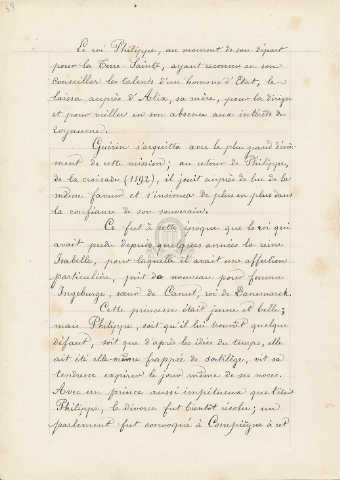 Le roi Philippe, au moment de son départ
pour la Terre-Sainte, ayant reconnu en son
Conseiller les talents d'un homme d'Etat, le
laissa auprès d'Alix, sa mère, pour la diriger
et pour veiller en son absence aux intérêts du
royaume.
Guérin s'acquitta avec le plus grand dévoû-
ment de cette mission; au retour de Philippe,
de la croisade (1192), il jouit auprès de lui de la
même faveur et s'insinua de plus en plus dans
la confiance de son souverain.
Ce fut à cette époque que le roi qui
avait perdu depuis quelques années la reine
Isabelle, pour laquelle il avait une affection
particulière, prit de nouveau pour femme
Ingeburge, sœur de Canut, roi de Danemarck.
Cette princesse était jeune et belle;
mais Philippe, soit qu'il lui trouvât quelque
défaut, soit que d'après les idées du temps, elle
ait été elle-même frappée de sortilège, vit sa
tendresse expirer le jour même de ses noces.
Avec un prince aussi impétueux que l'était
Philippe, le divorce fut bientôt résolu; un
parlement fut convoqué à Compiègne à cet